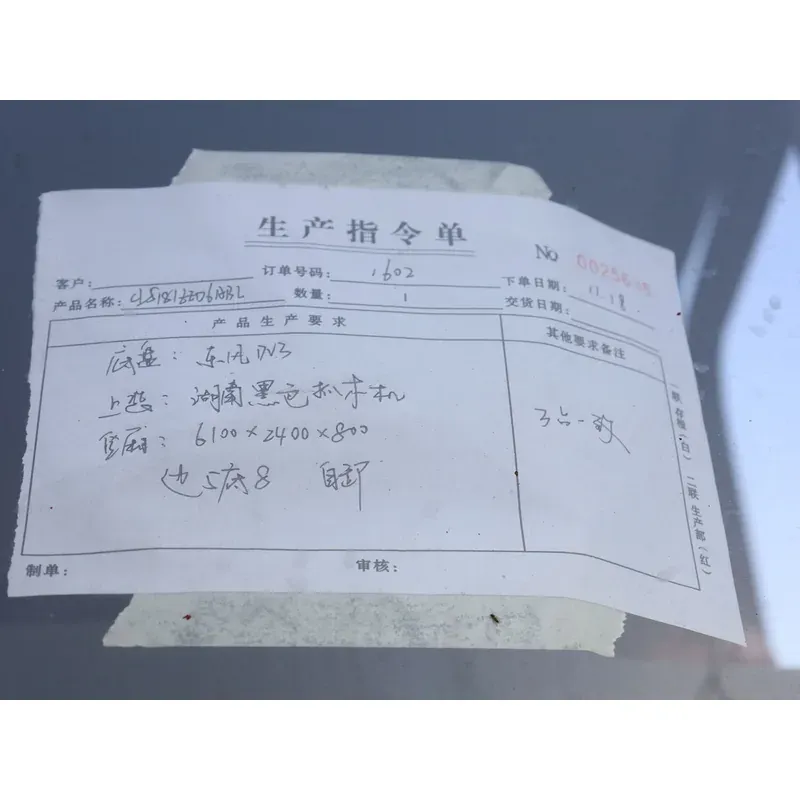 生产指令单
No 0025635
客户： 订单号码：1602 下单日期：11.18
产品名称： 数量：1 交货日期：
产品生产要求 其他要求备注
底盘：东风DV3
上装：湖南黑色抓木机
货厢：6100×2400×800
边5底8 自卸
3占一致
制单： 审核：
一联 存根（白） 二联 生产部（红）